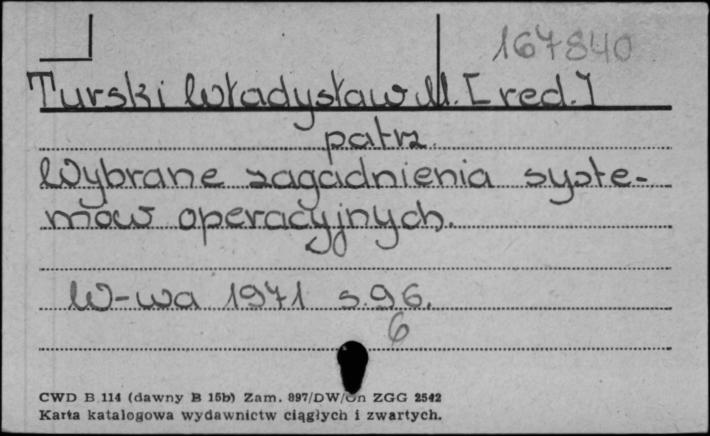 167840
Turski Władysław M. [red.]
patrz
Wybrane zagadnienia syste-
mów operacyjnych.
W-wa 1971 s. 96.
6
CWD B 114 (dawny B 15b) Zam. 897/DW/On ZGG 2542
Karta katalogowa wydawnictw ciągłych i zwartych.